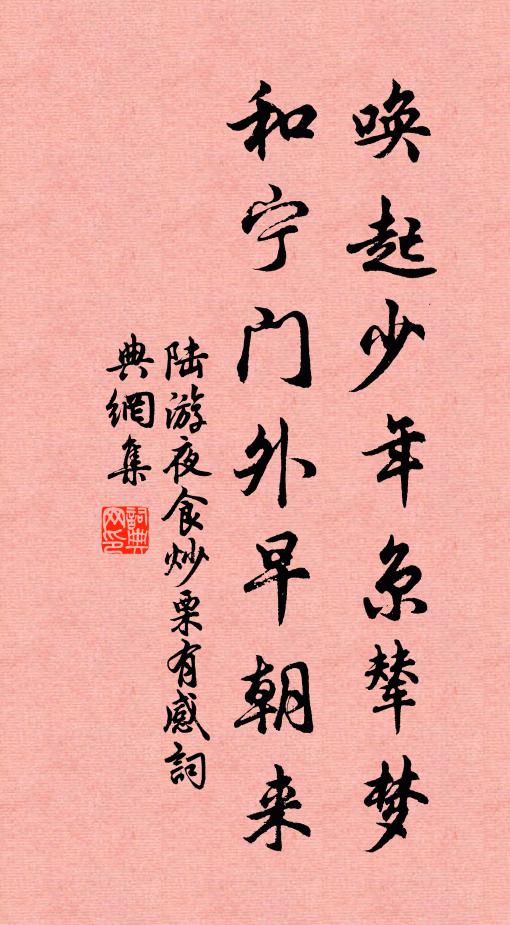 唤起少年京辇梦
和宁门外早朝来
陆游夜食炒栗有感詞
典網集
詞典网印